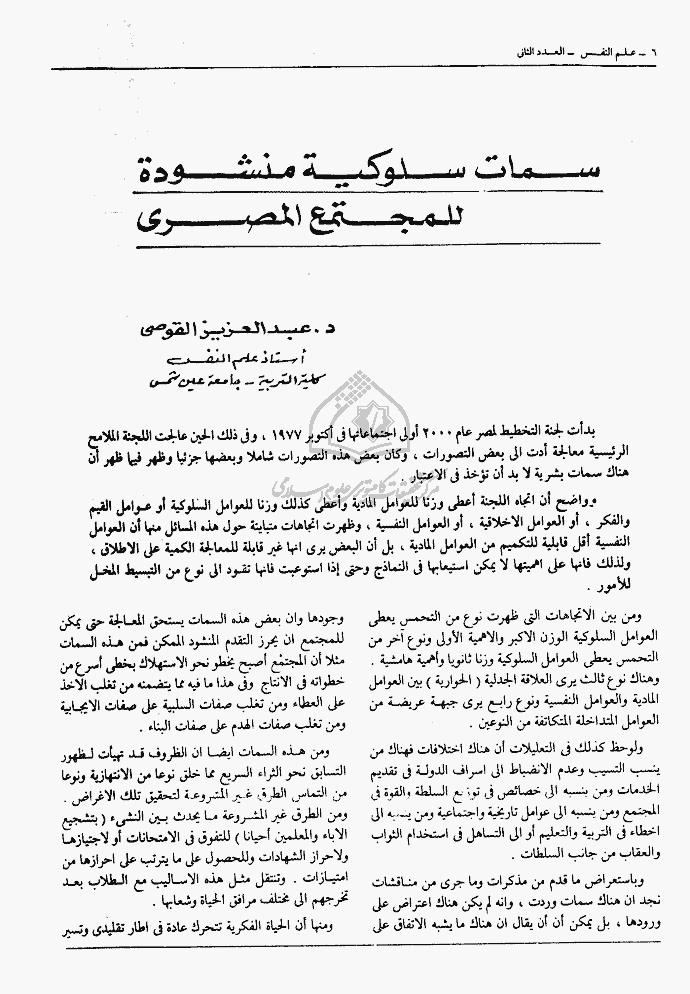 ٦ - علم النفس - العدد الثانى
سمات سلوكية منشودة
للمجتمع المصرى
د. عبد العزيز القوصى
أستاذ علم النفس
كلية التربية - جامعة عين شمس
بدأت لجنة التخطيط لمصر عام ٢٠٠٠ أولى اجتماعاتها فى أكتوبر ١٩٧٧ ، وفى ذلك الحين عالجت اللجنة الملامح
الرئيسية معالجة أدت الى بعض التصورات ، وكان بعض هذه التصورات شاملا وبعضها جزئيا وظهر فيها ظهر أن
هناك سمات بشرية لا بد أن تؤخذ فى الاعتبار .
وواضح أن اتجاه اللجنة أعطى وزنا للعوامل المادية وأعطى كذلك وزنا للعوامل السلوكية أو عوامل القيم
والفكر ، أو العوامل الاخلاقية ، أو العوامل النفسية ، وظهرت اتجاهات متباينة حول هذه المسائل منها أن العوامل
النفسية أقل قابلية للتكميم من العوامل المادية ، بل أن البعض يرى انها غير قابلة للمعالجة الكمية على الاطلاق ،
ولذلك فانها على اهميتها لا يمكن استيعابها فى النماذج وحتى إذا استوعبت فانها تقود الى نوع من التبسيط المخل
للأمور .
ومن بين الاتجاهات التى ظهرت نوع من التحمس يعطى
العوامل السلوكية الوزن الاكبر والاهمية الأولى ونوع آخر من
التحمس يعطى العوامل السلوكية وزنا ثانويا وأهمية هامشية .
وهناك نوع ثالث يرى العلاقة الجدلية ( الحوارية ) بين العوامل
المادية والعوامل النفسية ونوع رابع يرى جبهة عريضة من
العوامل المتداخلة المتكاتفة من النوعين .
ولوحظ كذلك فى التعليلات أن هناك اختلافات فهناك من
ينسب التسيب وعدم الانضباط الى اسراف الدولة فى تقديم
الخدمات ومن ينسبه الى خصائص فى توزيع السلطة والقوة فى
المجتمع ومن ينسبه الى عوامل تاريخية واجتماعية ومن ينسبه الى
اخطاء فى التربية والتعليم أو الى التساهل فى استخدام الثواب
والعقاب من جانب السلطات .
وباستعراض ما قدم من مذكرات وما جرى من مناقشات
نجد ان هناك سمات وردت ، وانه لم يكن هناك اعتراض على
ورودها ، بل يمكن أن أن يقال ان هناك ما يشبه الاتفاق على
وجودها وان بعض هذه السمات يستحق المعالجة حتى يمكن
للمجتمع ان يحرز التقدم المنشود الممكن فمن هذه السمات
مثلا أن المجتمع أصبح يخطو نحو الاستهلاك بخطى أسرع من
خطواته فى الانتاج وفى هذا ما فيه مما يتضمنه من تغلب الاخذ
على العطاء ومن تغلب صفات السلبية على صفات الايجابية
ومن تغلب صفات الهدم على صفات البناء .
ومن هذه السمات ايضا ان الظروف قد تهيأت لظهور
التسابق نحو الثراء السريع مما خلق نوعا من الانتهازية ونوعا
من التماس الطرق غير المشروعة لتحقيق تلك الاغراض .
ومن الطرق غير المشروعة ما يحدث بين النشىء ( بتشجيع
الاباء والمعلمين أحيانا ) للتفوق فى الامتحانات أو لاجتيازها
ولاحراز الشهادات وللحصول على ما يترتب على احرازها من
امتيازات . وتنتقل مثل هذه الاساليب مع الطلاب بعد
تخرجهم الى مختلف مرافق الحياة وشعابها .
ومنها أن الحياة الفكرية تتحرك عادة فى اطار تقليدى وتسير